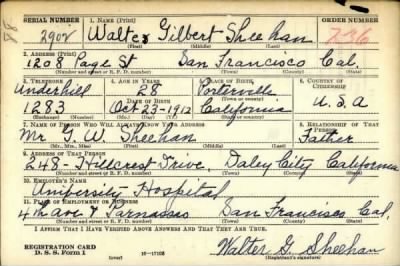 SERIAL NUMBER 1. NAME (Print) ORDER NUMBER
2902 Walter Gilbert Sheehan
(First) (Middle) (Last)
2. ADDRESS (Print)
1208 Page St San Francisco Cal.
(Number and street or R. F. D. number) (Town) (County) (State)
3. TELEPHONE 4. AGE IN YEARS 5. PLACE OF BIRTH 6. COUNTRY OF CITIZENSHIP
Underhill 28 Porterville
DATE OF BIRTH (Town or county)
1283 Oct-23-1912 California U.S.A
(Exchange) (Number) (Mo.) (Day) (Yr.) (State or country)
7. NAME OF PERSON WHO WILL ALWAYS KNOW YOUR ADDRESS 8. RELATIONSHIP OF THAT PERSON
Mr. G. W. Sheehan Father
(Mr., Mrs., Miss) (First) (Middle) (Last)
9. ADDRESS OF THAT PERSON
248-Hillcrest Drive. Daley City California
(Number and street or R. F. D. number) (Town) (County) (State)
10. EMPLOYER'S NAME
University Hospital
11. PLACE OF EMPLOYMENT OR BUSINESS
4th ave & Parnassas San Francisco Cal.
(Number and street or R. F. D. number) (Town) (County) (State)
I AFFIRM THAT I HAVE VERIFIED ABOVE ANSWERS AND THAT THEY ARE TRUE.
REGISTRATION CARD
D. S. S. Form 1 Walter G. Sheehan
(Registrant's signature)